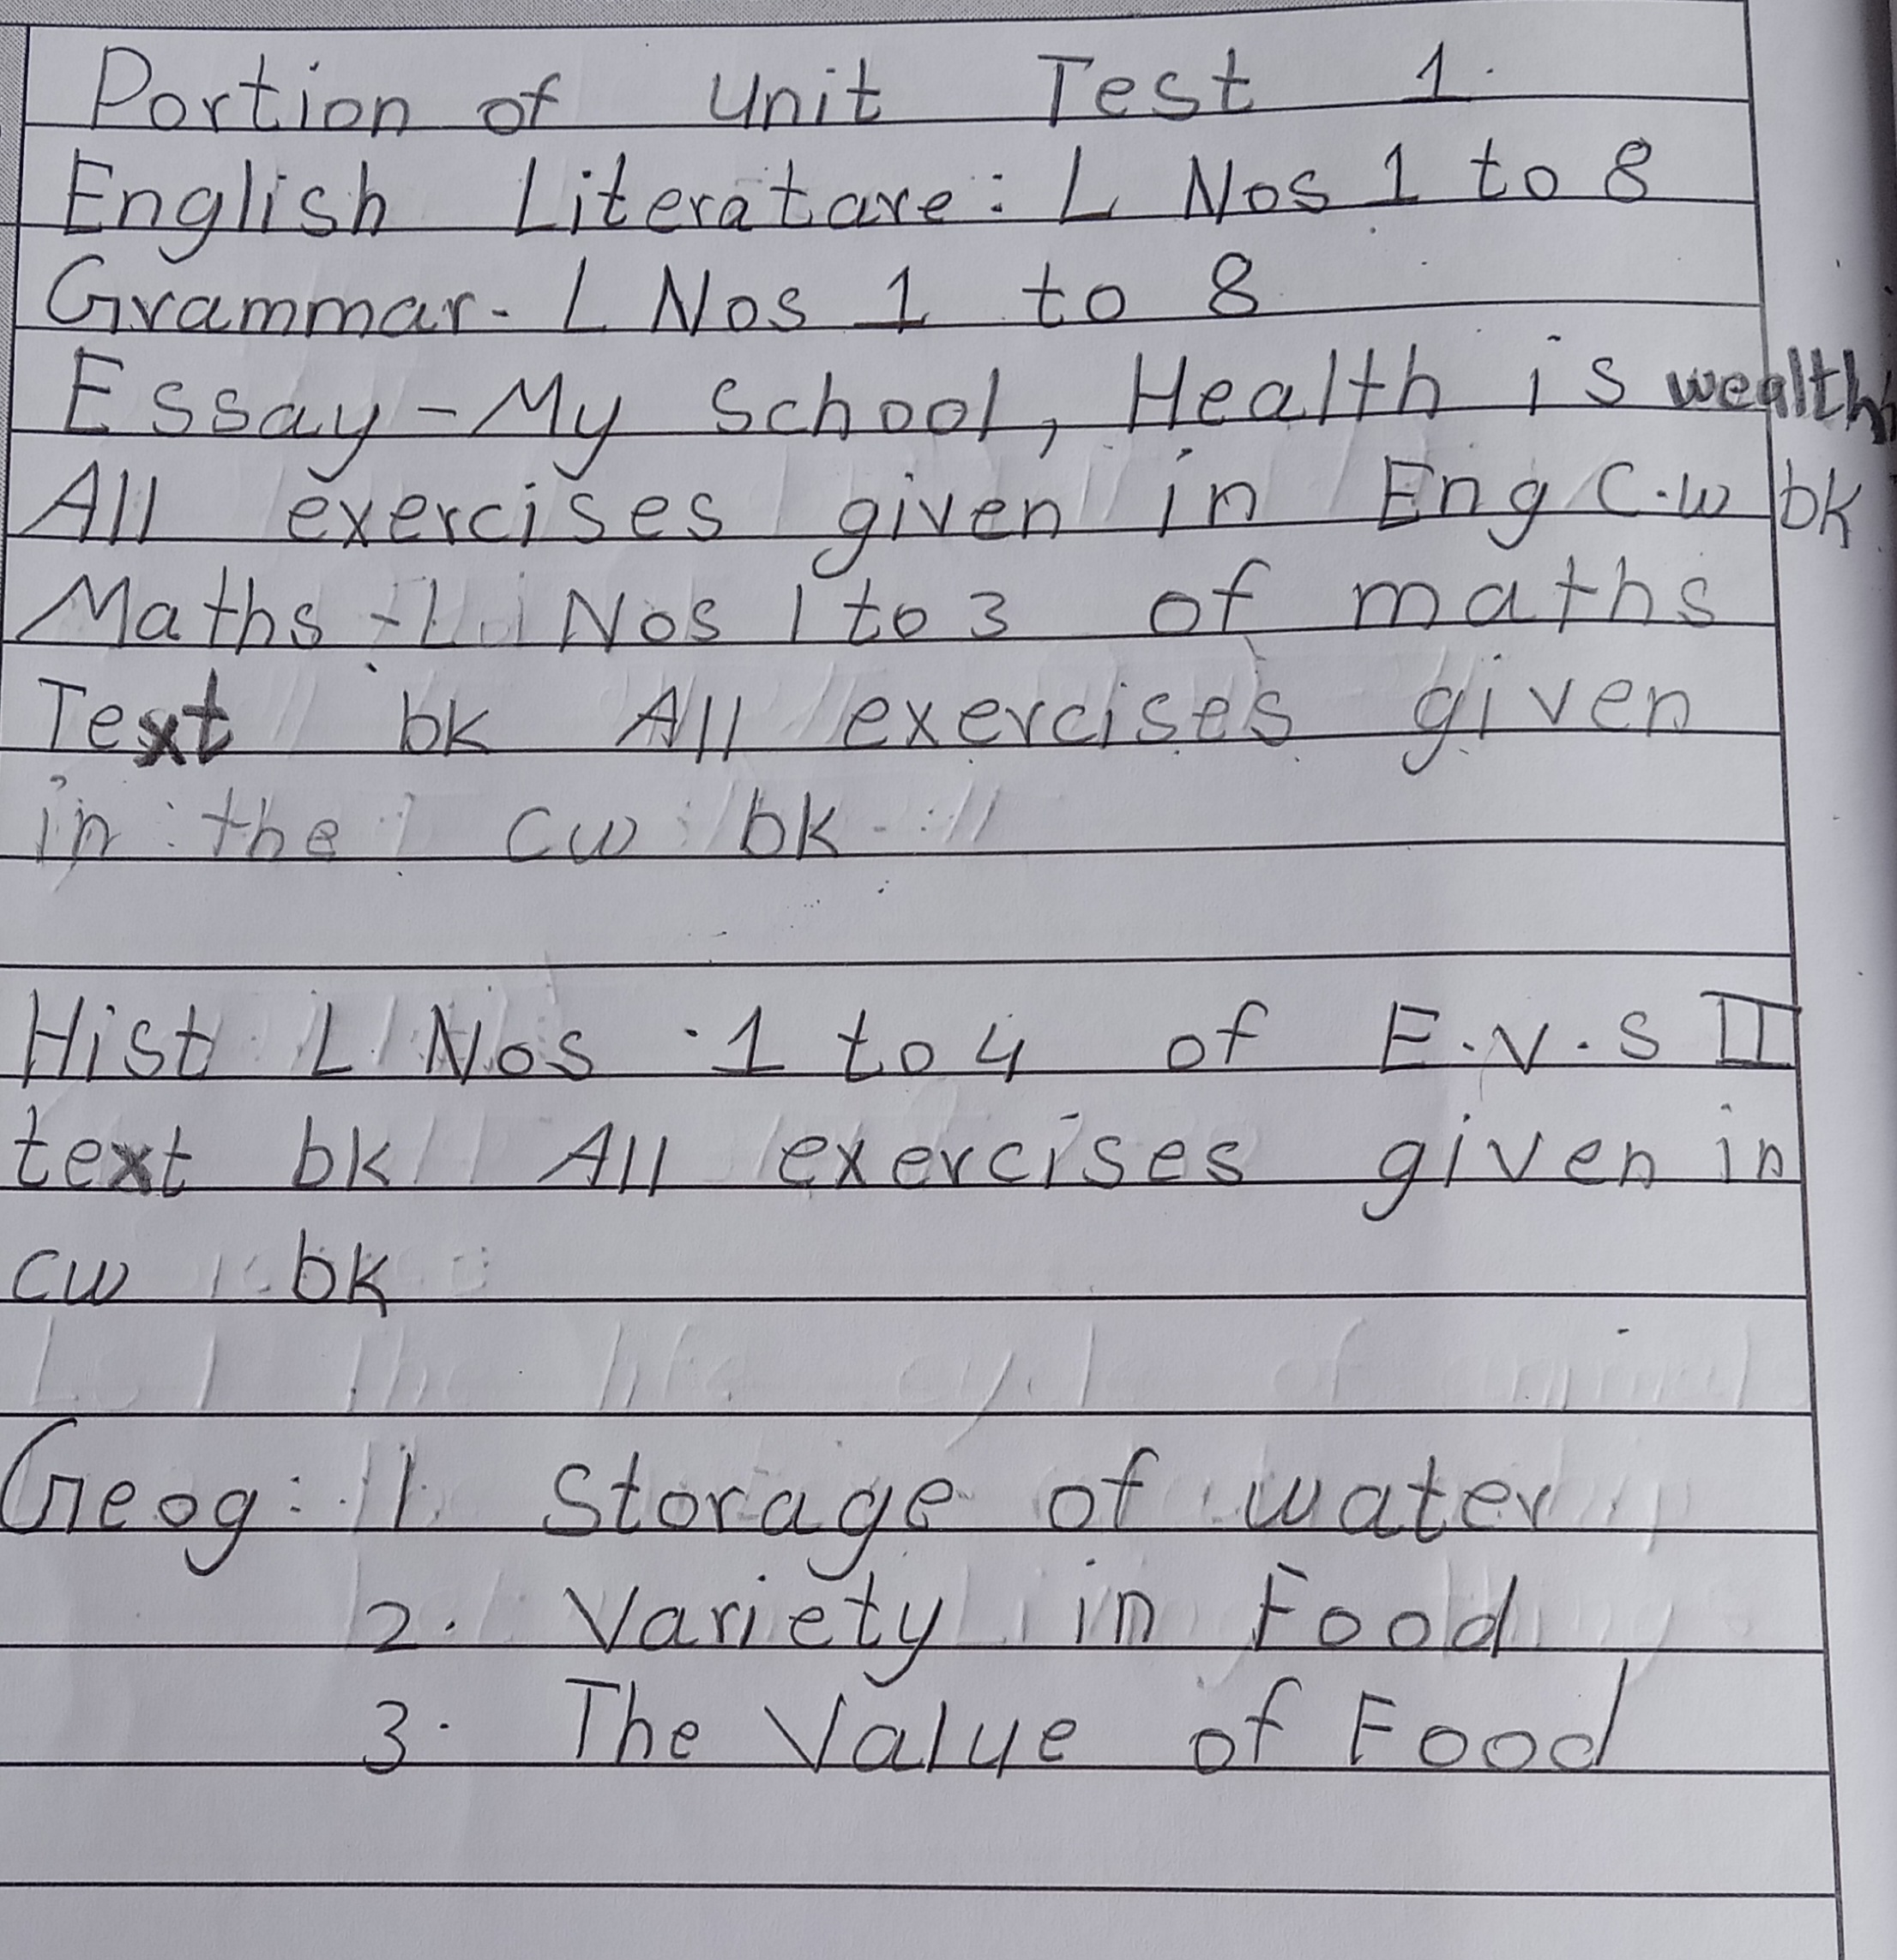 Portion of Unit Test 1.
English Literatare: L Nos 1 to 8
Grammar. L Nos 1 to 8
Essay - My School, Health is wealth
All exercises given in Eng C.w bk
Maths - L Nos 1 to 3 of maths
Text bk All exercises given
in the cw bk
Hist L Nos 1 to 4 of E.V.S II
text bk All exercises given in
cw bk
Geog: 1. Storage of water
2. Variety in Food
3. The Value of Food